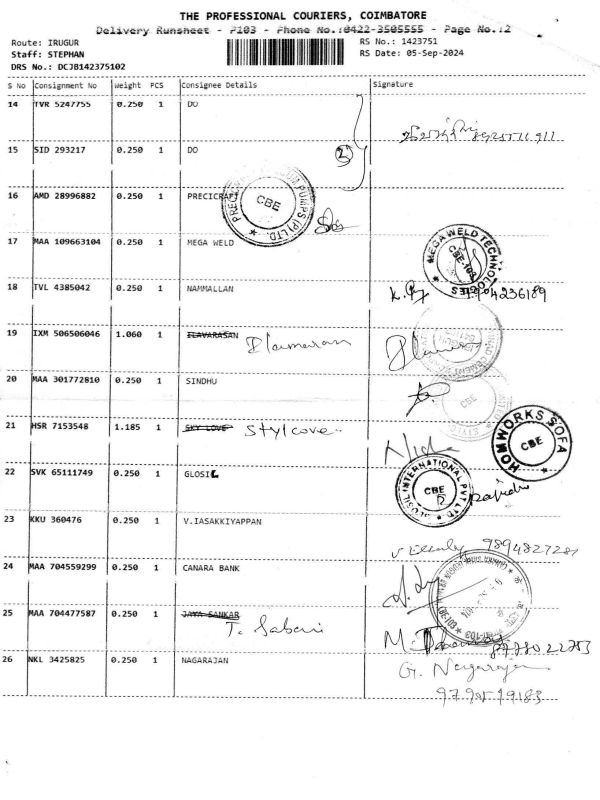 THE PROFESSIONAL COURIERS, COIMBATORE
Delivery Runsheet - P103 - Phone No.:0422-3505555 - Page No.:2
Route: IRUGUR
Staff: STEPHAN
DRS No.: DCJB142375102
RS No.: 1423751
RS Date: 05-Sep-2024
S No Consignment No Weight PCS Consignee Details Signature
14 TVR 5247755 0.250 1 DO
15 SID 293217 0.250 1 DO
2
16 AMD 28996882 0.250 1 PRECICRAFT
CBE
17 MAA 109663104 0.250 1 MEGA WELD
MEGAWELD TECHNOLOGIES
CBE-103
18 TVL 4385042 0.250 1 NAMMALLAN
19 IXM 506506046 1.060 1 ELAVARASAN Elamaran
20 MAA 301772810 0.250 1 SINDHU
CBE
21 HSR 7153548 1.185 1 SKY LOVE Stylcove
HOMWORKS SOFA
CBE
22 SVK 65111749 0.250 1 GLOSIL
GLOSIL INTERNATIONAL PVT LTD
CBE
23 KKU 360476 0.250 1 V.IASAKKIYAPPAN
9894827281
24 MAA 704559299 0.250 1 CANARA BANK
25 MAA 704477587 0.250 1 JAYA SANKAR T. Sabari
26 NKL 3425825 0.250 1 NAGARAJAN
G. Nagarajan